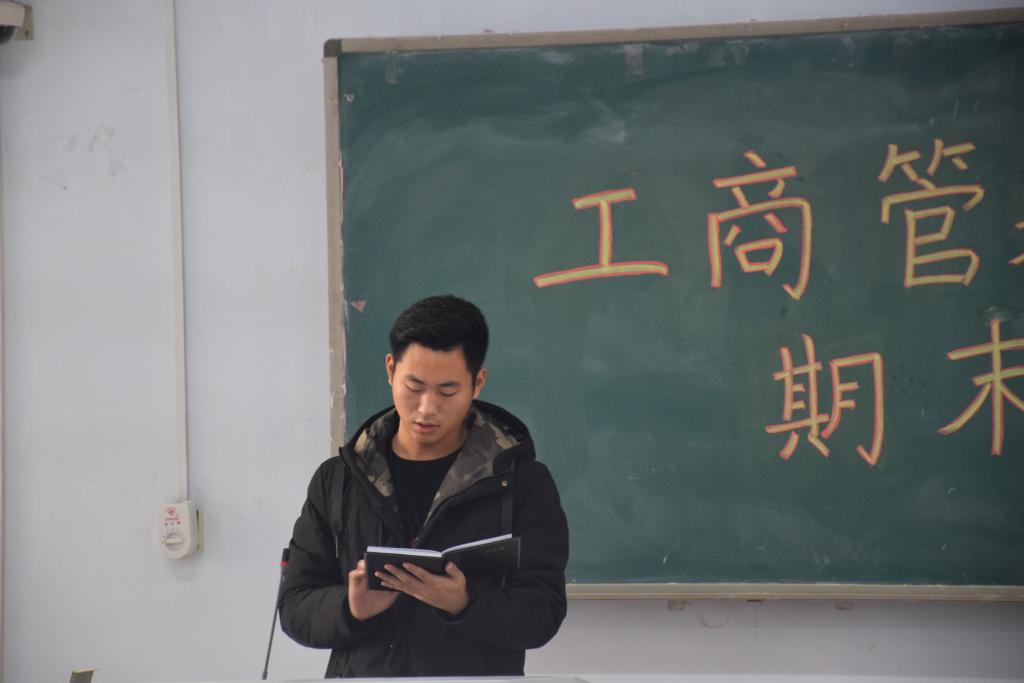 工商管
期末